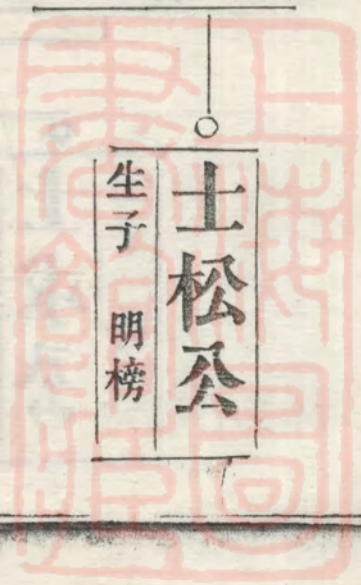 士松公
生子 明榜